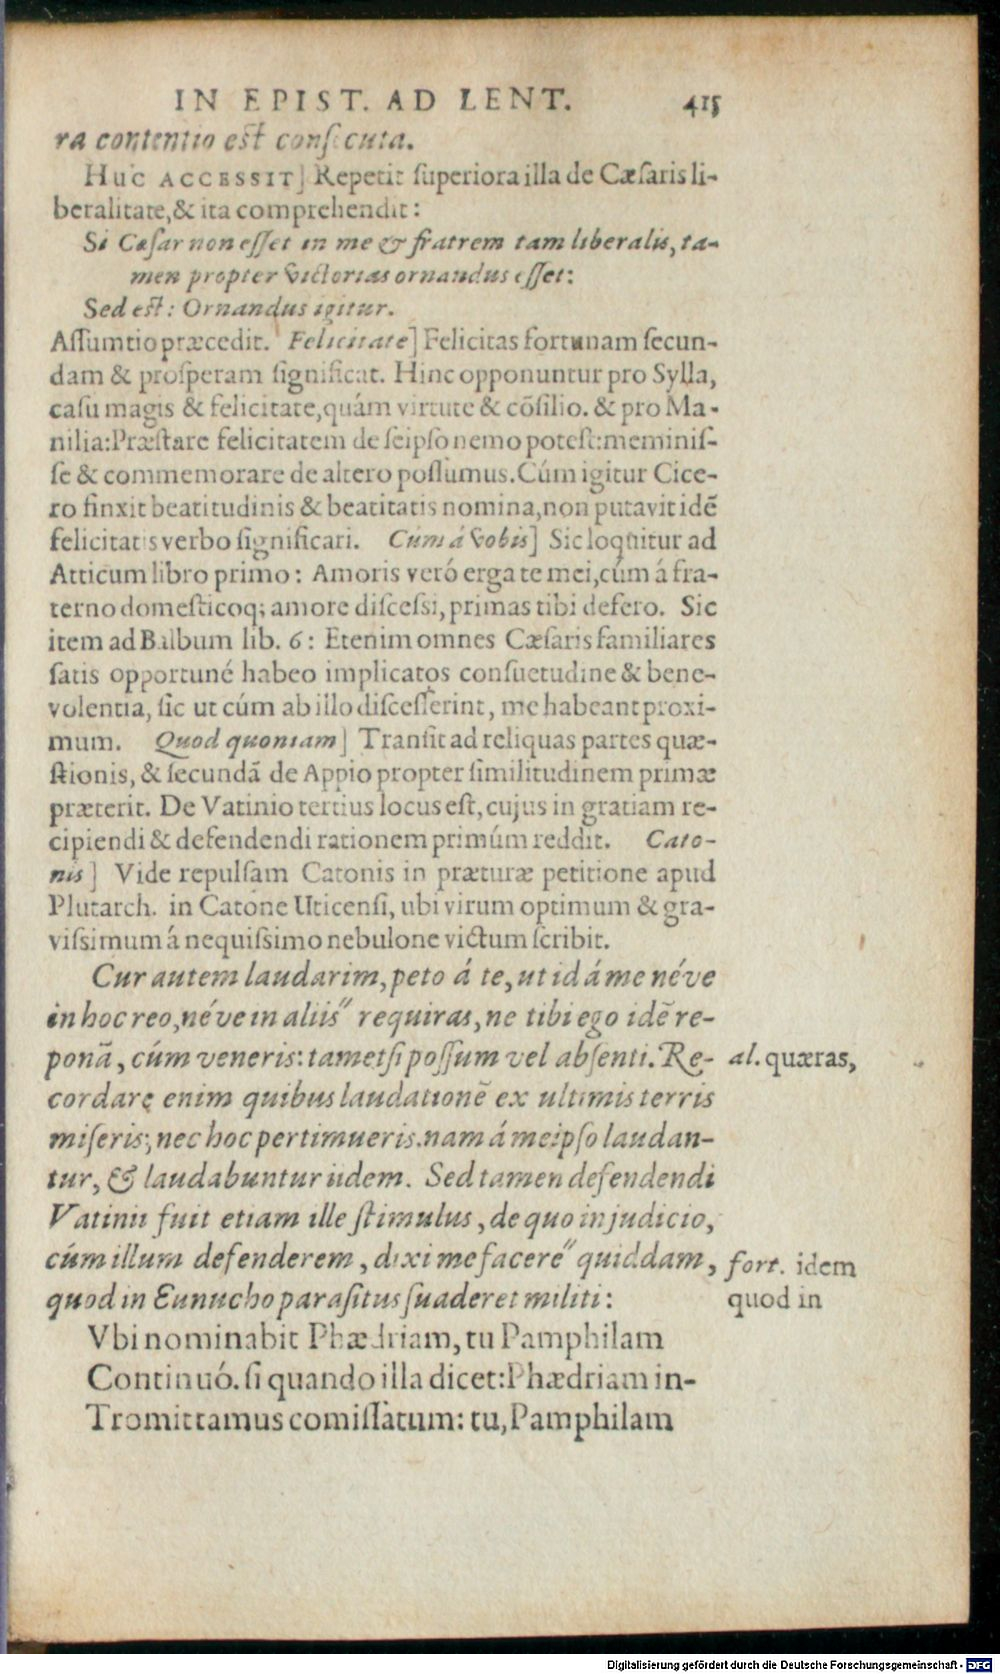 IN EPIST. AD LENT. 415
ra contentio est consecuta.
HUC ACCESSIT] Repetit superiora illa de Cæsaris li-
beralitate, & ita comprehendit:
Si Cæsar non esset in me & fratrem tam liberalis, ta-
men propter victorias ornandus esset:
Sed est: Ornandus igitur.
Assumtio præcedit. Felicitate] Felicitas fortunam secun-
dam & prosperam significat. Hinc opponuntur pro Sylla,
casu magis & felicitate, quám virtute & cõsilio. & pro Ma-
nilia: Præstare felicitatem de seipso nemo potest: meminis-
se & commemorare de altero possumus. Cúm igitur Cice-
ro finxit beatitudinis & beatitatis nomina, non putavit idẽ
felicitatis verbo significari. Cùm á vobis] Sic loquitur ad
Atticum libro primo: Amoris veró erga te mei, cúm á fra-
terno domesticoq; amore discessi, primas tibi defero. Sic
item ad Balbum lib. 6: Etenim omnes Cæsaris familiares
satis opportuné habeo implicatos consuetudine & bene-
volentia, sic ut cúm ab illo discesserint, me habeant proxi-
mum. Quod quoniam] Transit ad reliquas partes quæ-
stionis, & secundã de Appio propter similitudinem primæ
præterit. De Vatinio tertius locus est, cujus in gratiam re-
cipiendi & defendendi rationem primúm reddit. Cato-
nis] Vide repulsam Catonis in præturæ petitione apud
Plutarch. in Catone Uticensi, ubi virum optimum & gra-
vissimum á nequissimo nebulone victum scribit.
Cur autem laudarim, peto á te, ut id á me néve
in hoc reo, néve in aliis" requiras, ne tibi ego idẽ re-
ponã, cúm veneris: tametsi possum vel absenti. Re- al. quæras,
cordare enim quibus laudationẽ ex ultimis terris
miseris; nec hoc pertimueris. nam á meipso laudan-
tur, & laudabuntur iidem. Sed tamen defendendi
Vatinii fuit etiam ille stimulus, de quo in judicio,
cúm illum defenderem, dixi me facere" quiddam, fort. idem
quod in Eunucho parasitus suaderet militi: quod in
Vbi nominabit Phædriam, tu Pamphilam
Continuó. si quando illa dicet: Phædriam in-
Tromittamus comissàtum: tu, Pamphilam
Digitalisierung gefördert durch die Deutsche Forschungsgemeinschaft - DFG